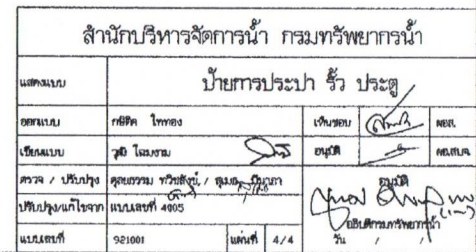 สำนักบริหารจัดการน้ำ กรมทรัพยากรน้ำ
แสดงแบบ ป้ายการประปา รั้ว ประตู
ออกแบบ เห็นชอบ ผอส.
เขียนแบบ วุฒิ โฉมงาม อนุมัติ ผอ.สบจ.
ตรวจ / ปรับปรุง อนุมัติ
ปรับปรุง/แก้ไขจาก แบบเลขที่ 4005
อธิบดีกรมทรัพยากรน้ำ
แบบเลขที่ 921001 แผ่นที่ 4/4 วัน / /